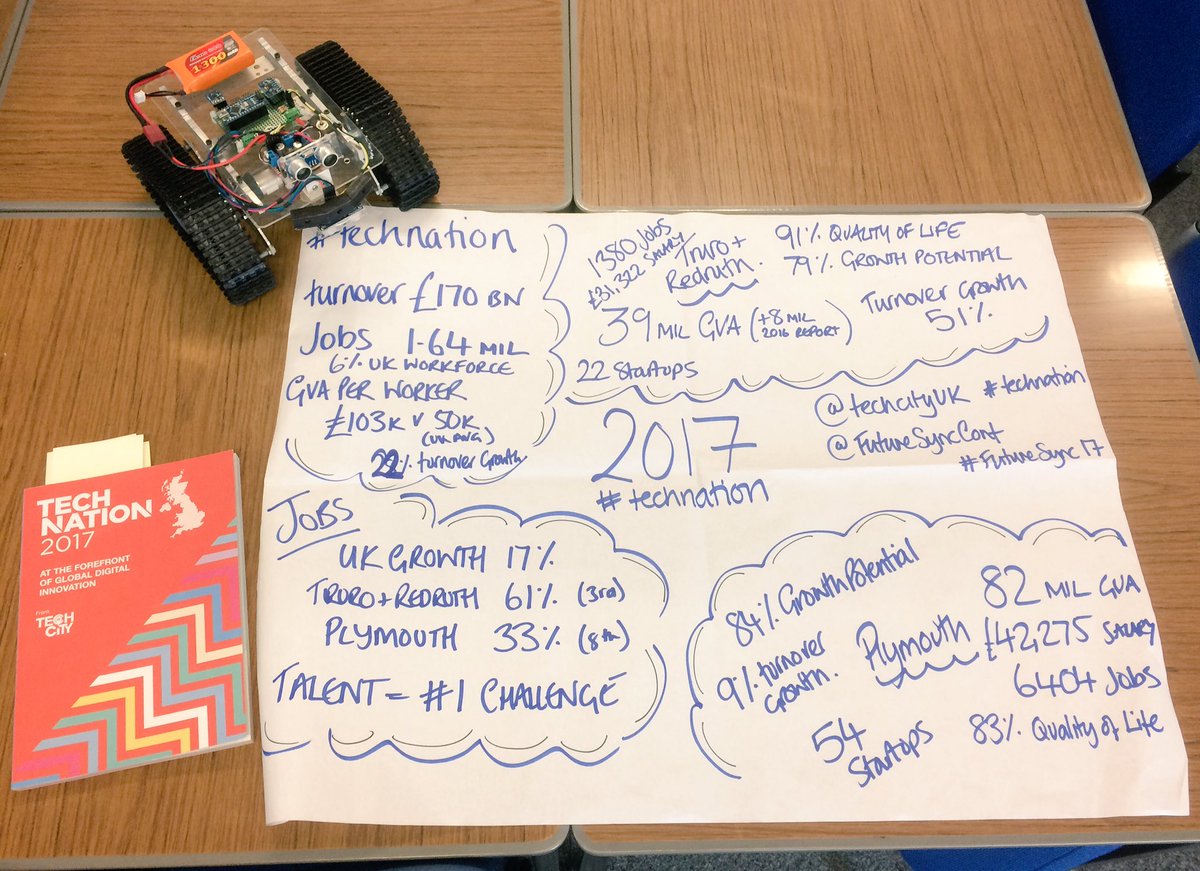 1300
#technation
turnover £170 BN
Jobs 1.64 MIL
6% UK WORKFORCE
GVA PER WORKER
£103K v 50K
(UK AVG)
22% turnover Growth
1380 Jobs
£31,322 SALARY
Truro +
Redruth
91% QUALITY OF LIFE
79% GROWTH POTENTIAL
39 MIL GVA (+8 MIL
2016 REPORT)
TURNOVER Growth
51%
22 Startups
2017
#technation
@techcityUK #technation
@FutureSyncConf
#FutureSync17
JOBS
UK GROWTH 17%
TRURO + REDRUTH 61% (3rd)
PLYMOUTH 33% (8th)
TALENT = #1 CHALLENGE
84% Growth Potential
9% turnover
Growth.
Plymouth
54
Startups
82 MIL GVA
£42,275 SALARY
6404 Jobs
83% Quality of Life
TECH
NATION
2017
AT THE FOREFRONT
OF GLOBAL DIGITAL
INNOVATION
From
TECH
CITY